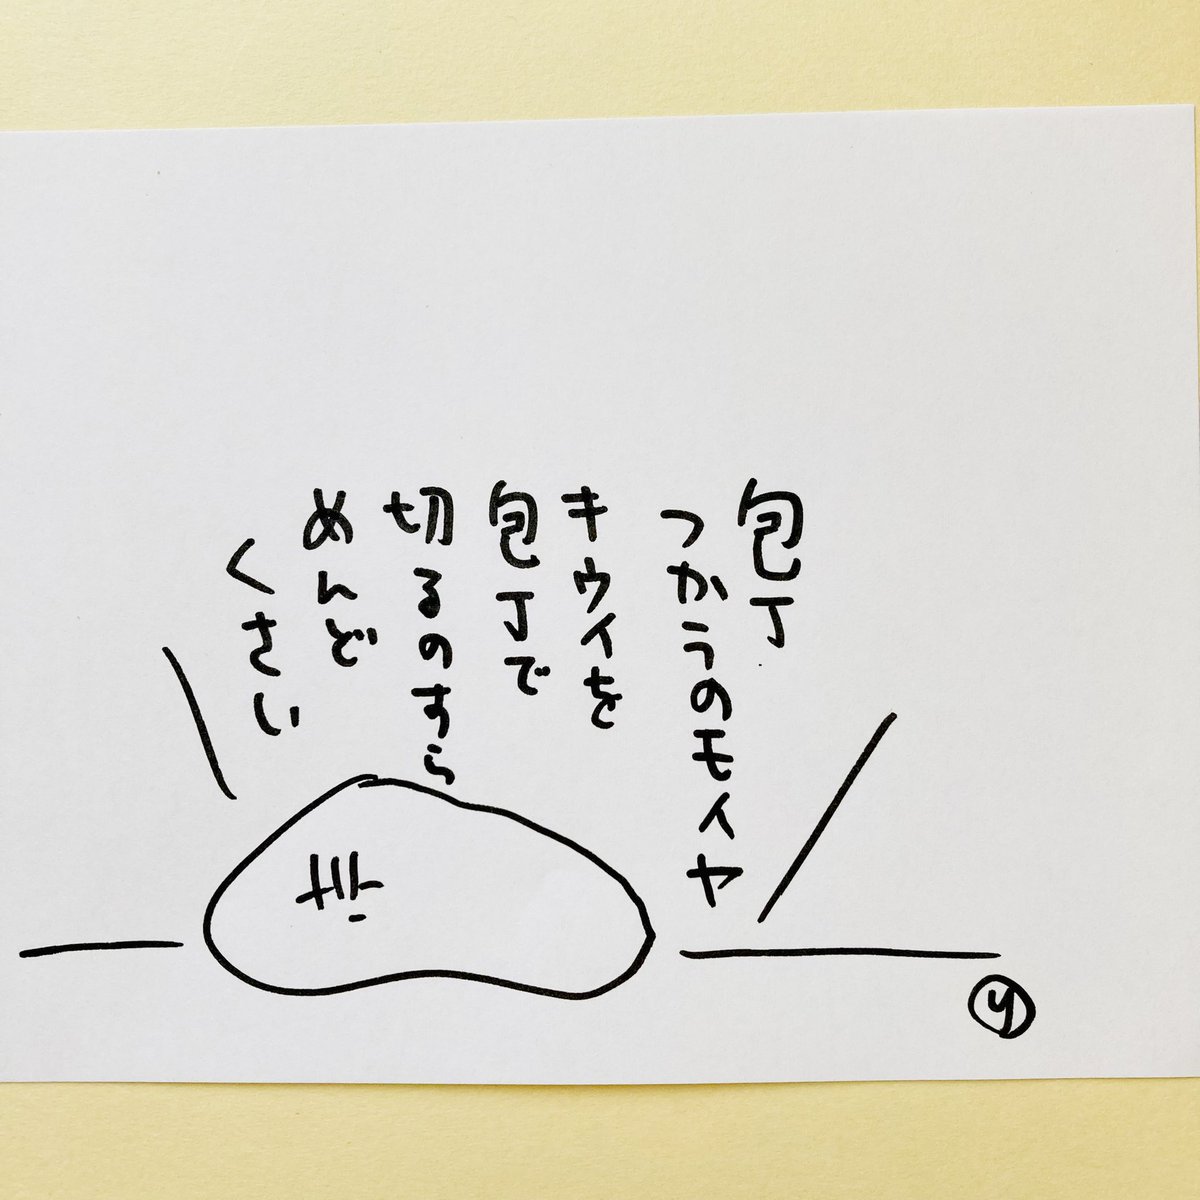 包丁
つかうのモイヤ
キウイを
包丁で
切るのすら
めんど
くさい